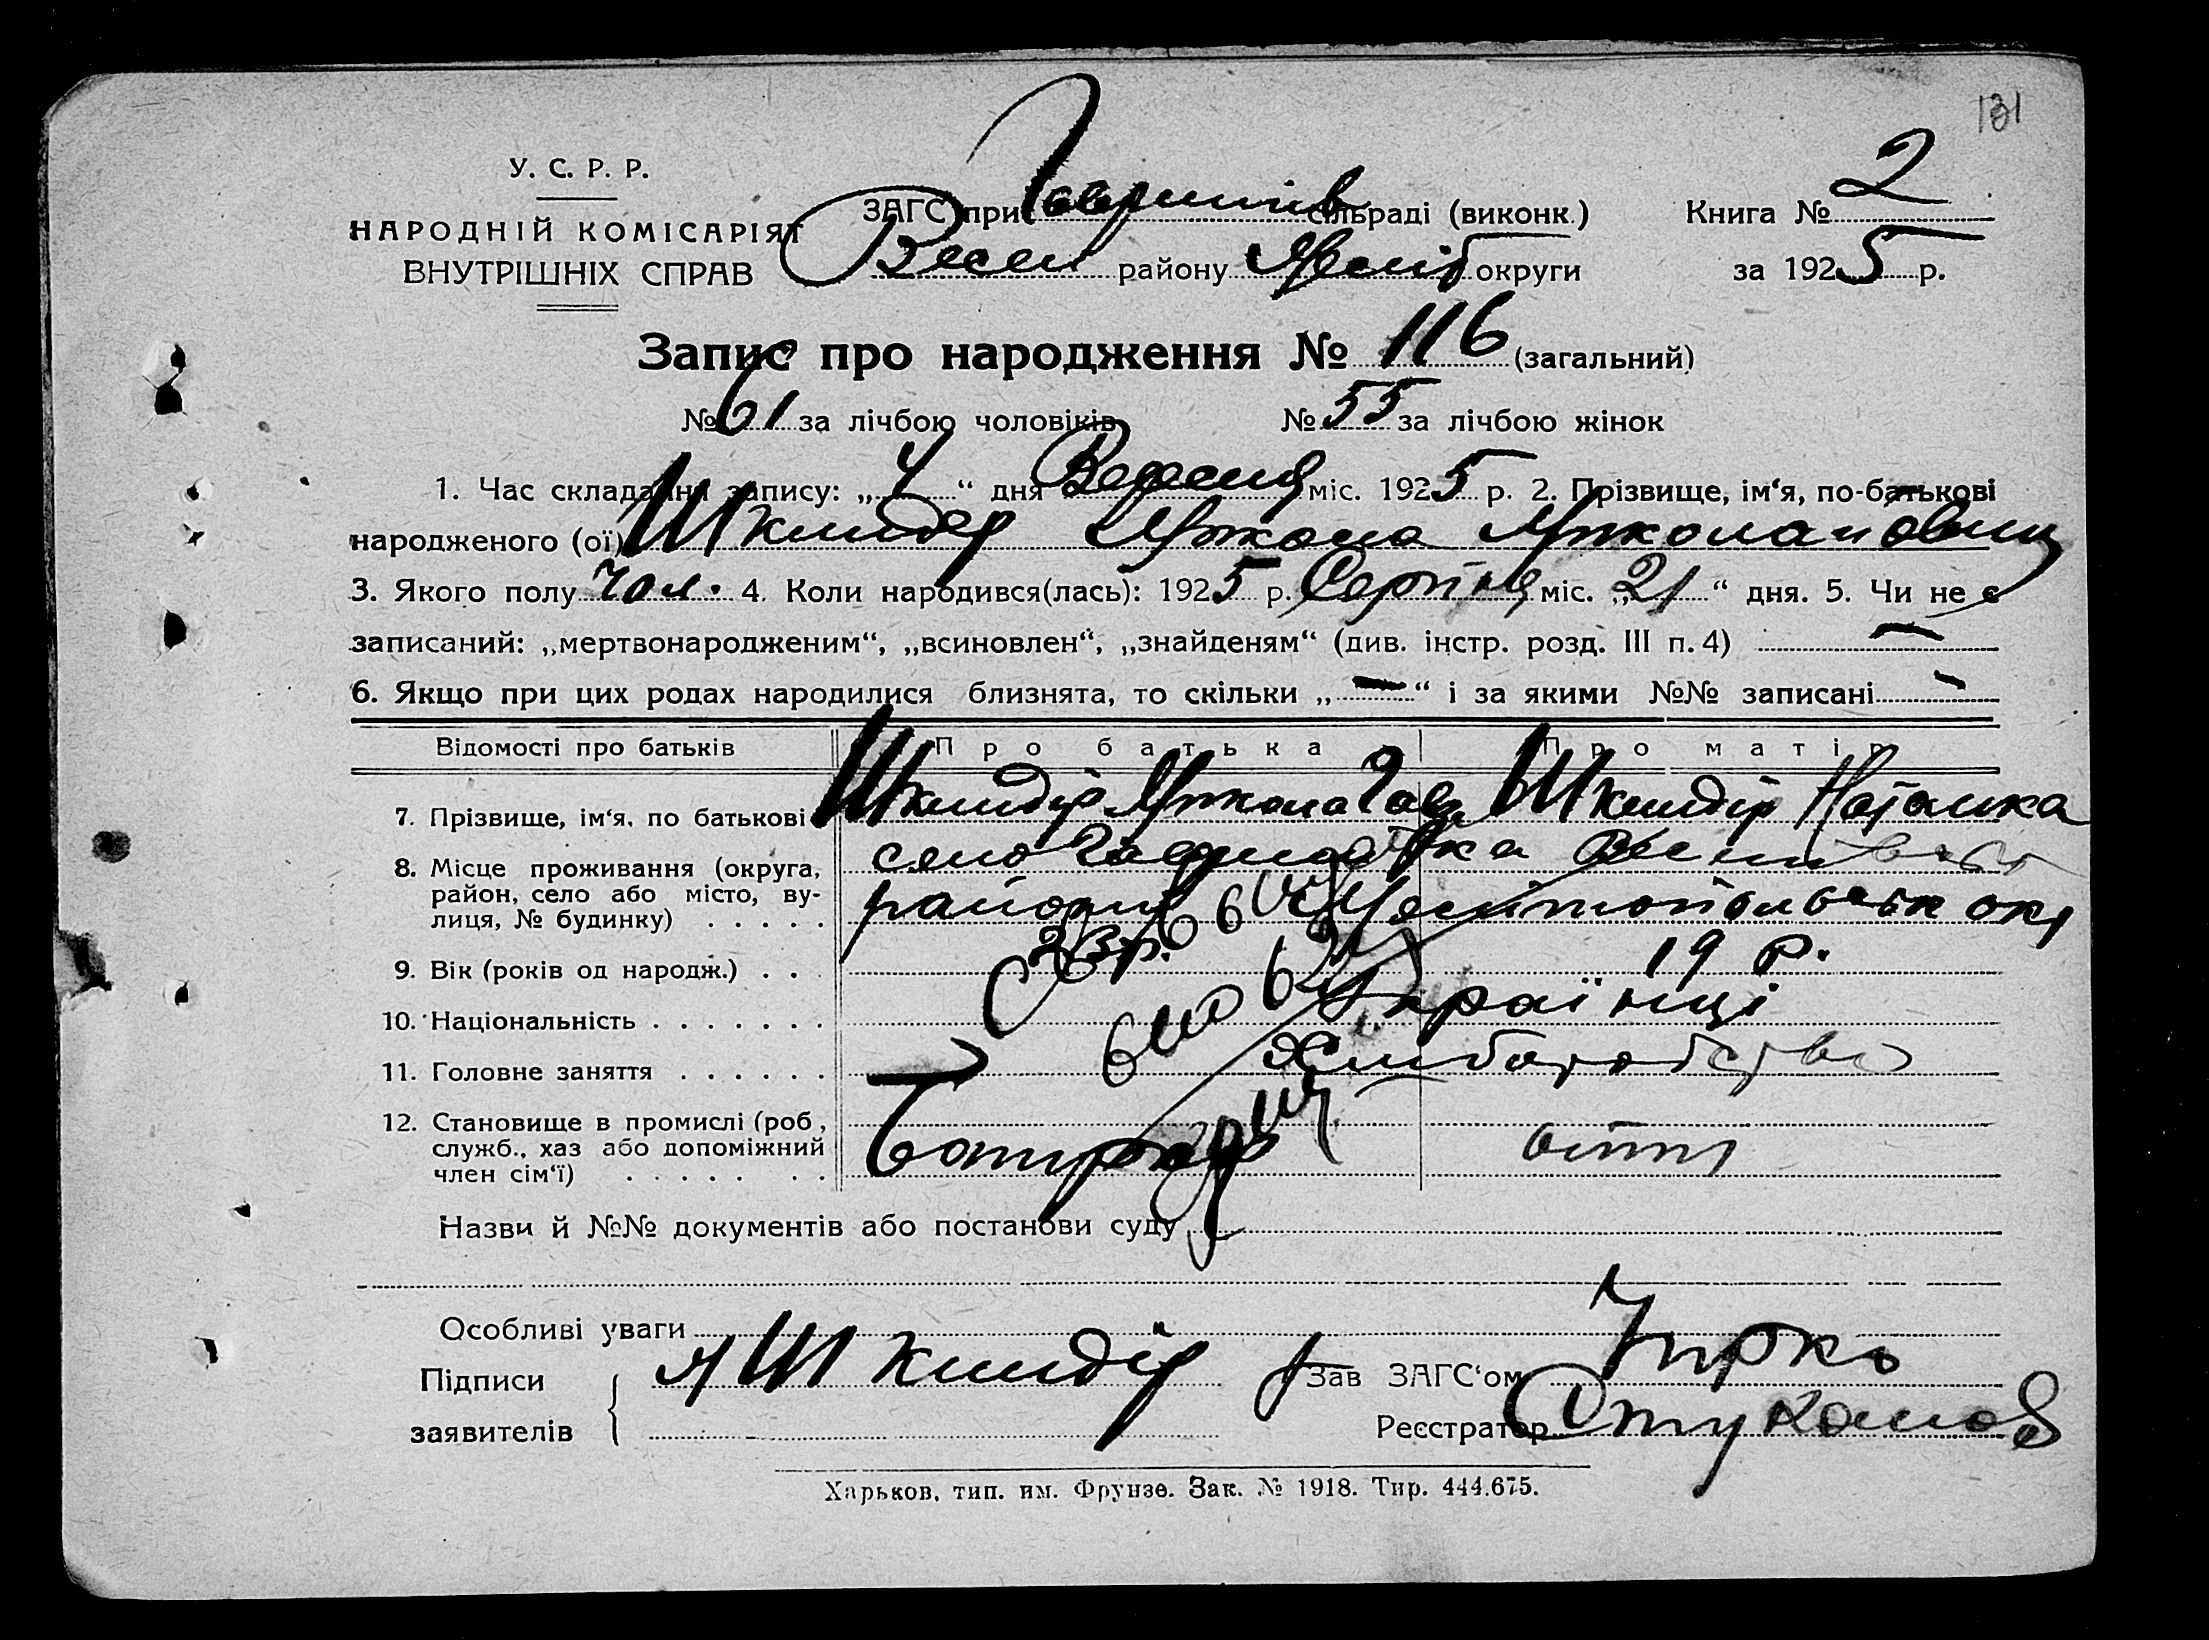 131
У. С. Р. Р.
НАРОДНІЙ КОМІСАРІЯТ
ВНУТРІШНІХ СПРАВ
ЗАГС при Гаврилів сільраді (виконк.)
Весел району Меліт округи
Книга № 2
за 1925 р.
Запис про народження № 116 (загальний)
№ 61 за лічбою чоловіків № 55 за лічбою жінок
1. Час складання запису: „ 4 “ дня Вересня міс. 1925 р. 2. Прізвище, ім‘я, по-батькові
народженого (ої) Шкиндер Микола Миколайович
3. Якого полу чол. 4. Коли народився(лась): 1925 р. Серпня міс. „ 21 “ дня. 5. Чи не є
записаний: „мертвонародженим“, „всиновлен“, „знайденям“ (див. інстр. розд. III п. 4) —
6. Якщо при цих родах народилися близнята, то скільки „ — “ і за якими №№ записані —
Відомості про батьків Про батька Про матір
7. Прізвище, ім‘я, по батькові Шкиндір Микола Гав Шкиндір Наталка
8. Місце проживання (округа, район, село або місто, вулиця, № будинку) село Гаврилівка
району Мелітопольськ окр
9. Вік (років од народж.) 23 р. 19 р.
10. Національність Українці
11. Головне заняття Хліборобство
12. Становище в промислі (роб, служб., хаз або допоміжний член сім‘ї)
Назви й №№ документів або постанови суду
Особливі уваги
Підписи заявителів Шкиндір
Зав ЗАГС‘ом
Реєстратор
Харьков, тип. им. Фрунзе. Зак. № 1918. Тир. 444.675.